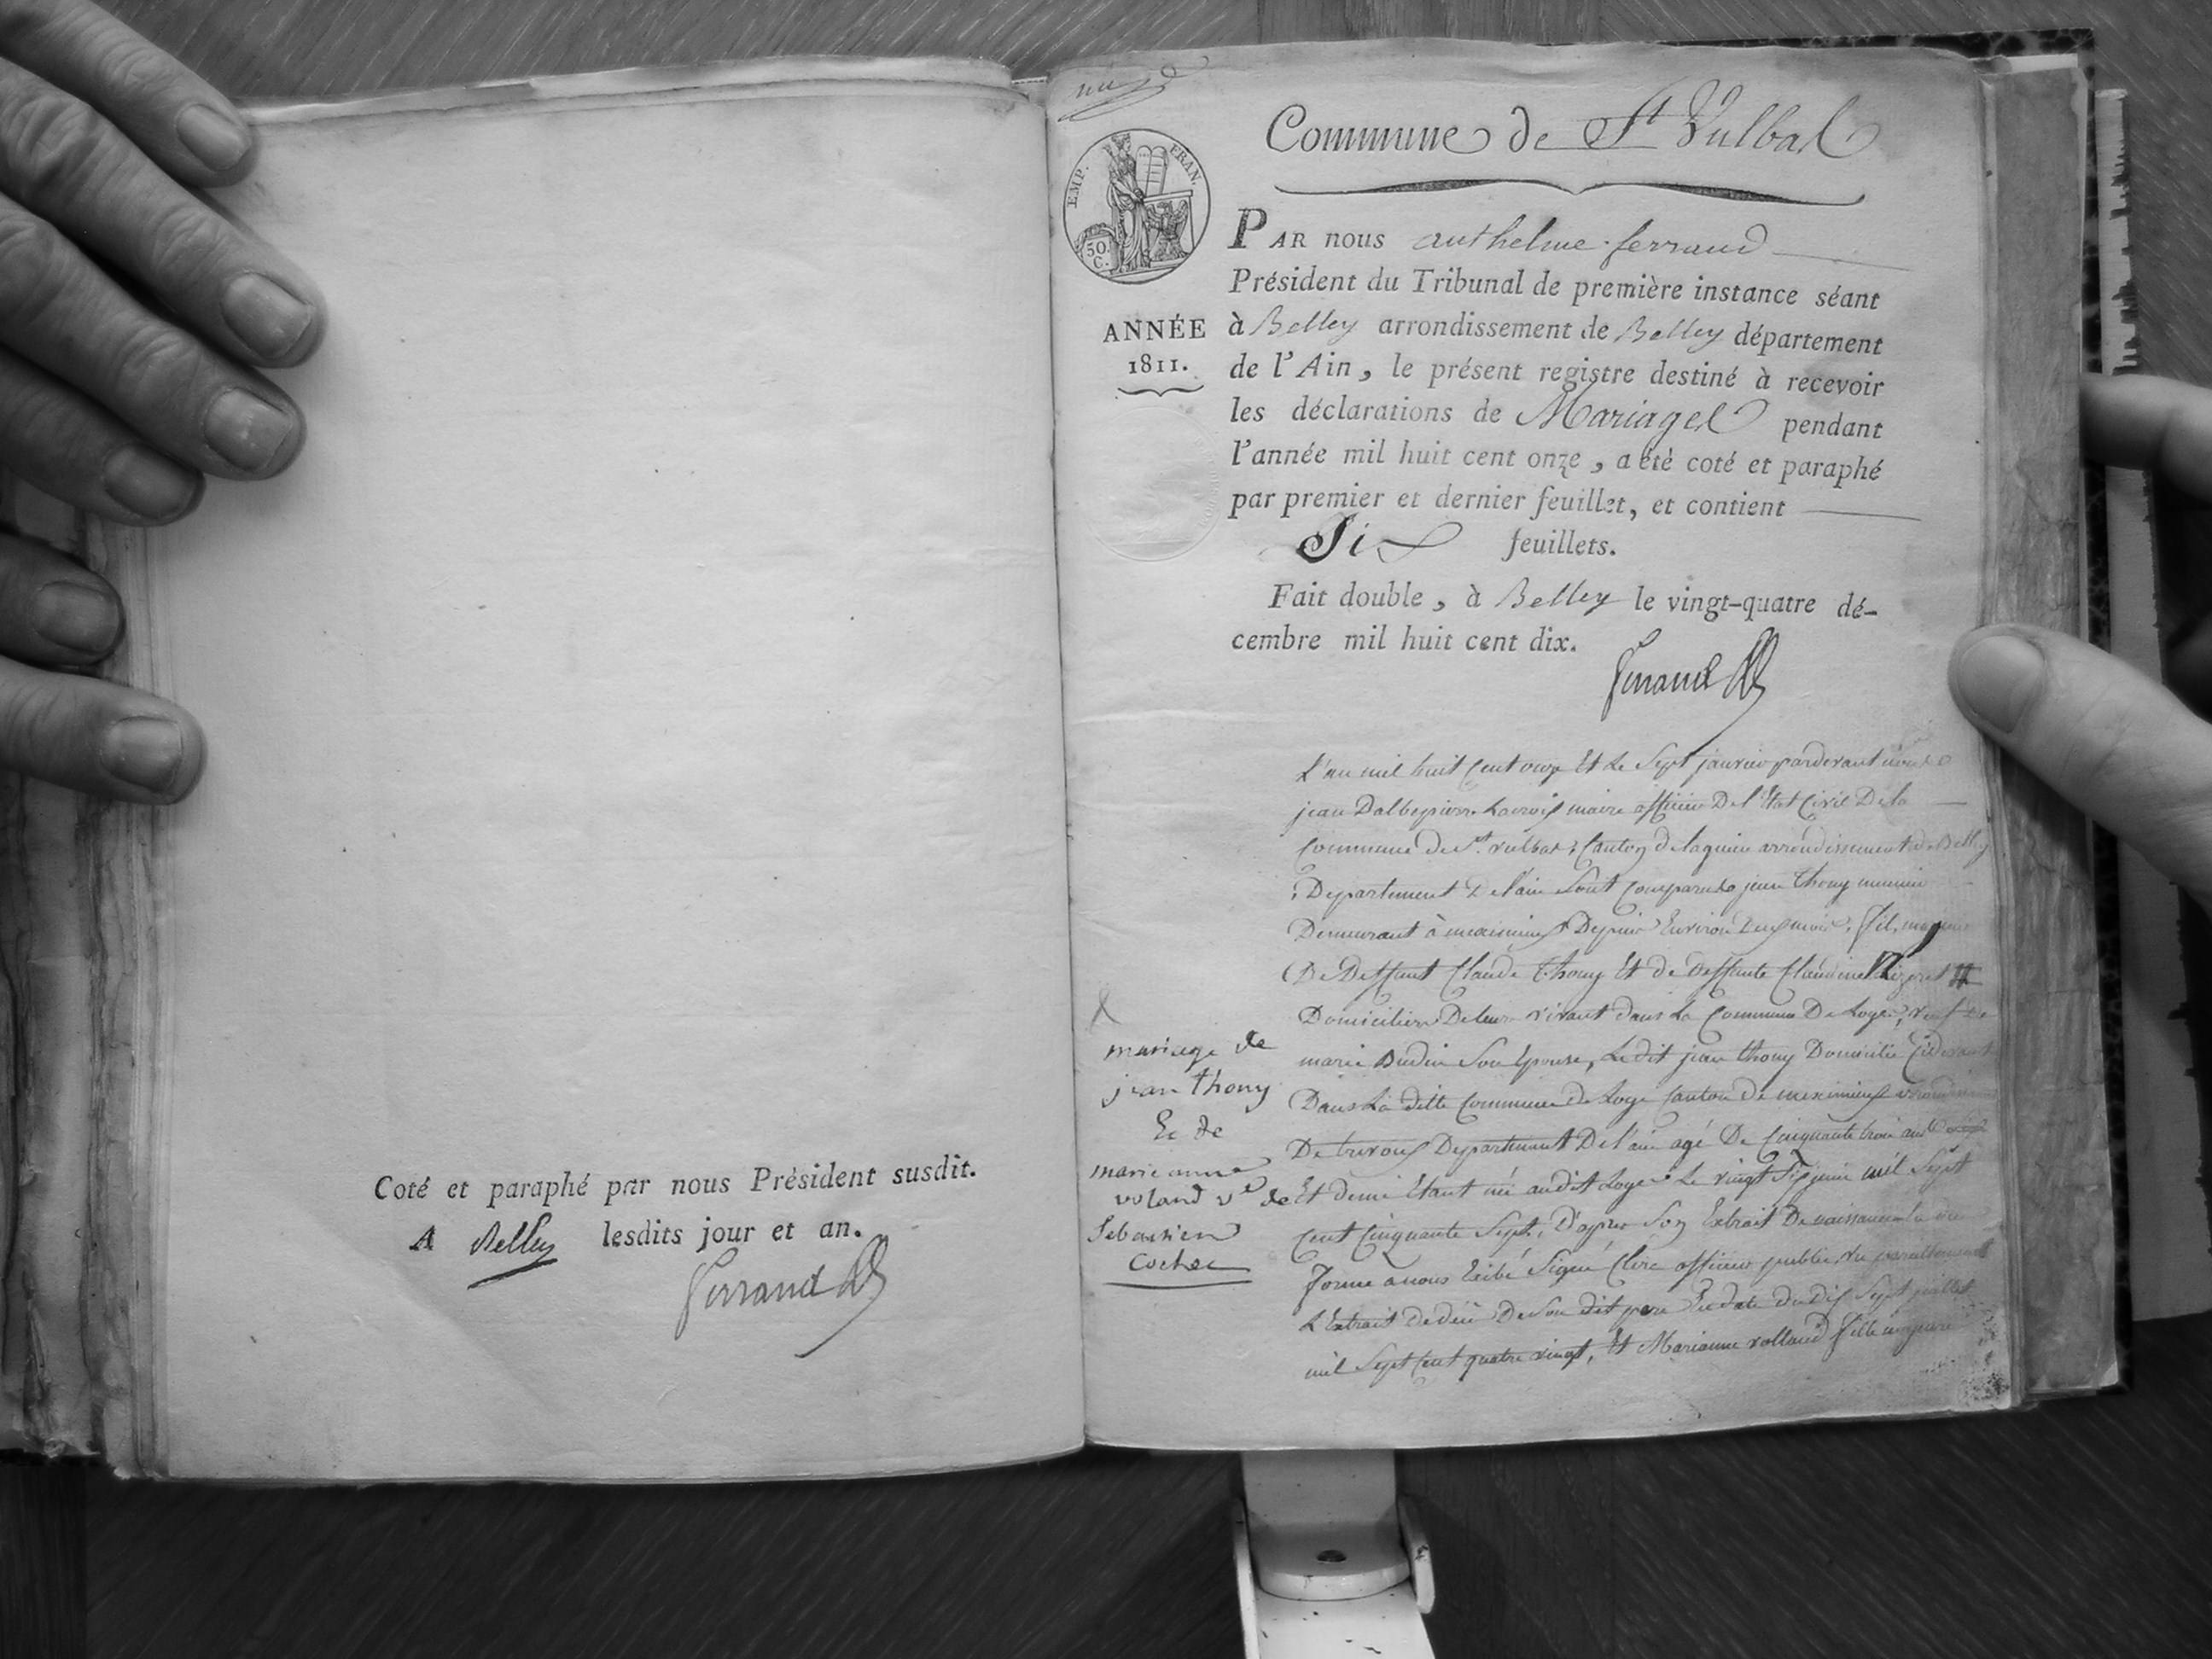 Coté et paraphé par nous Président susdit.
A Belley lesdits jour et an.
Ferrand
Commune de St Vulbas
EMP. FRAN.
50 C.
ANNÉE
1811.
PAR nous anthelme ferrand
Président du Tribunal de première instance séant
à Belley arrondissement de Belley département
de l'Ain, le présent registre destiné à recevoir
les déclarations de Mariages pendant
l'année mil huit cent onze, a été coté et paraphé
par premier et dernier feuillet, et contient
Six feuillets.
Fait double, à Belley le vingt-quatre dé-
cembre mil huit cent dix.
Ferrand
mariage de
jean thony
Et de
marie anne
voland ve de
Sebastien
L'an mil huit Cent onze Et Le Sept janvier pardevant nous
jean Dalbepierre Lacroix maire officier De l'Etat Civil De la
Commune de St. vulbas, Canton de lagnieu arrondissement de Belley
Departement De l'ain Sont Comparus jean thony
Demeurant à meximieux Depuis Environ Deux mois, fils majeur
De Deffunt Claude thony Et de Deffunte Claudine
Domiciliés De leur vivant dans La Commune De Loyes, veuf de
marie Budin Son Epouse, Ledit jean thony Domicilié
Dans La ditte Commune de Loye Canton de meximieux
De trevoux Departement De l'ain agé De Cinquante trois ans
Et demi Etant né audit Loye Le vingt Six juin mil Sept
Cent Cinquante Sept, D'après Son Extrait De naissance
forme a nous Exibé Signé Clerc officier public, vu pareillement
L'Extrait de décé De Son dit pere En date du dix Sept juillet
mil Sept Cent quatre vingt, Et Marianne volland fille